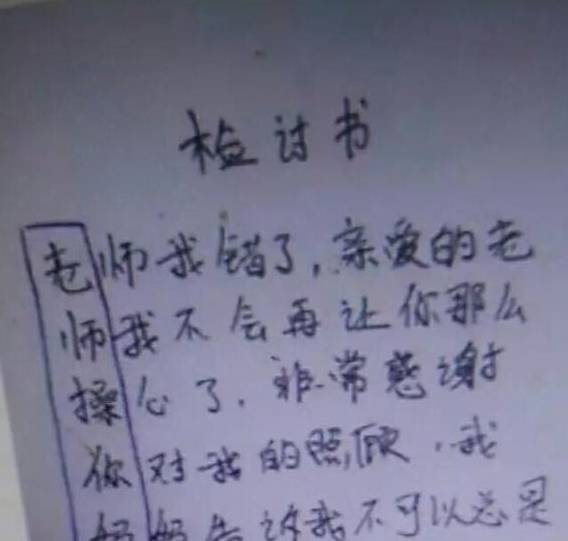 检讨书
老师我错了,亲爱的老
师我不会再让你那么
操心了.非常感谢
你对我的照顾.我
妈妈告诉我不可以总是